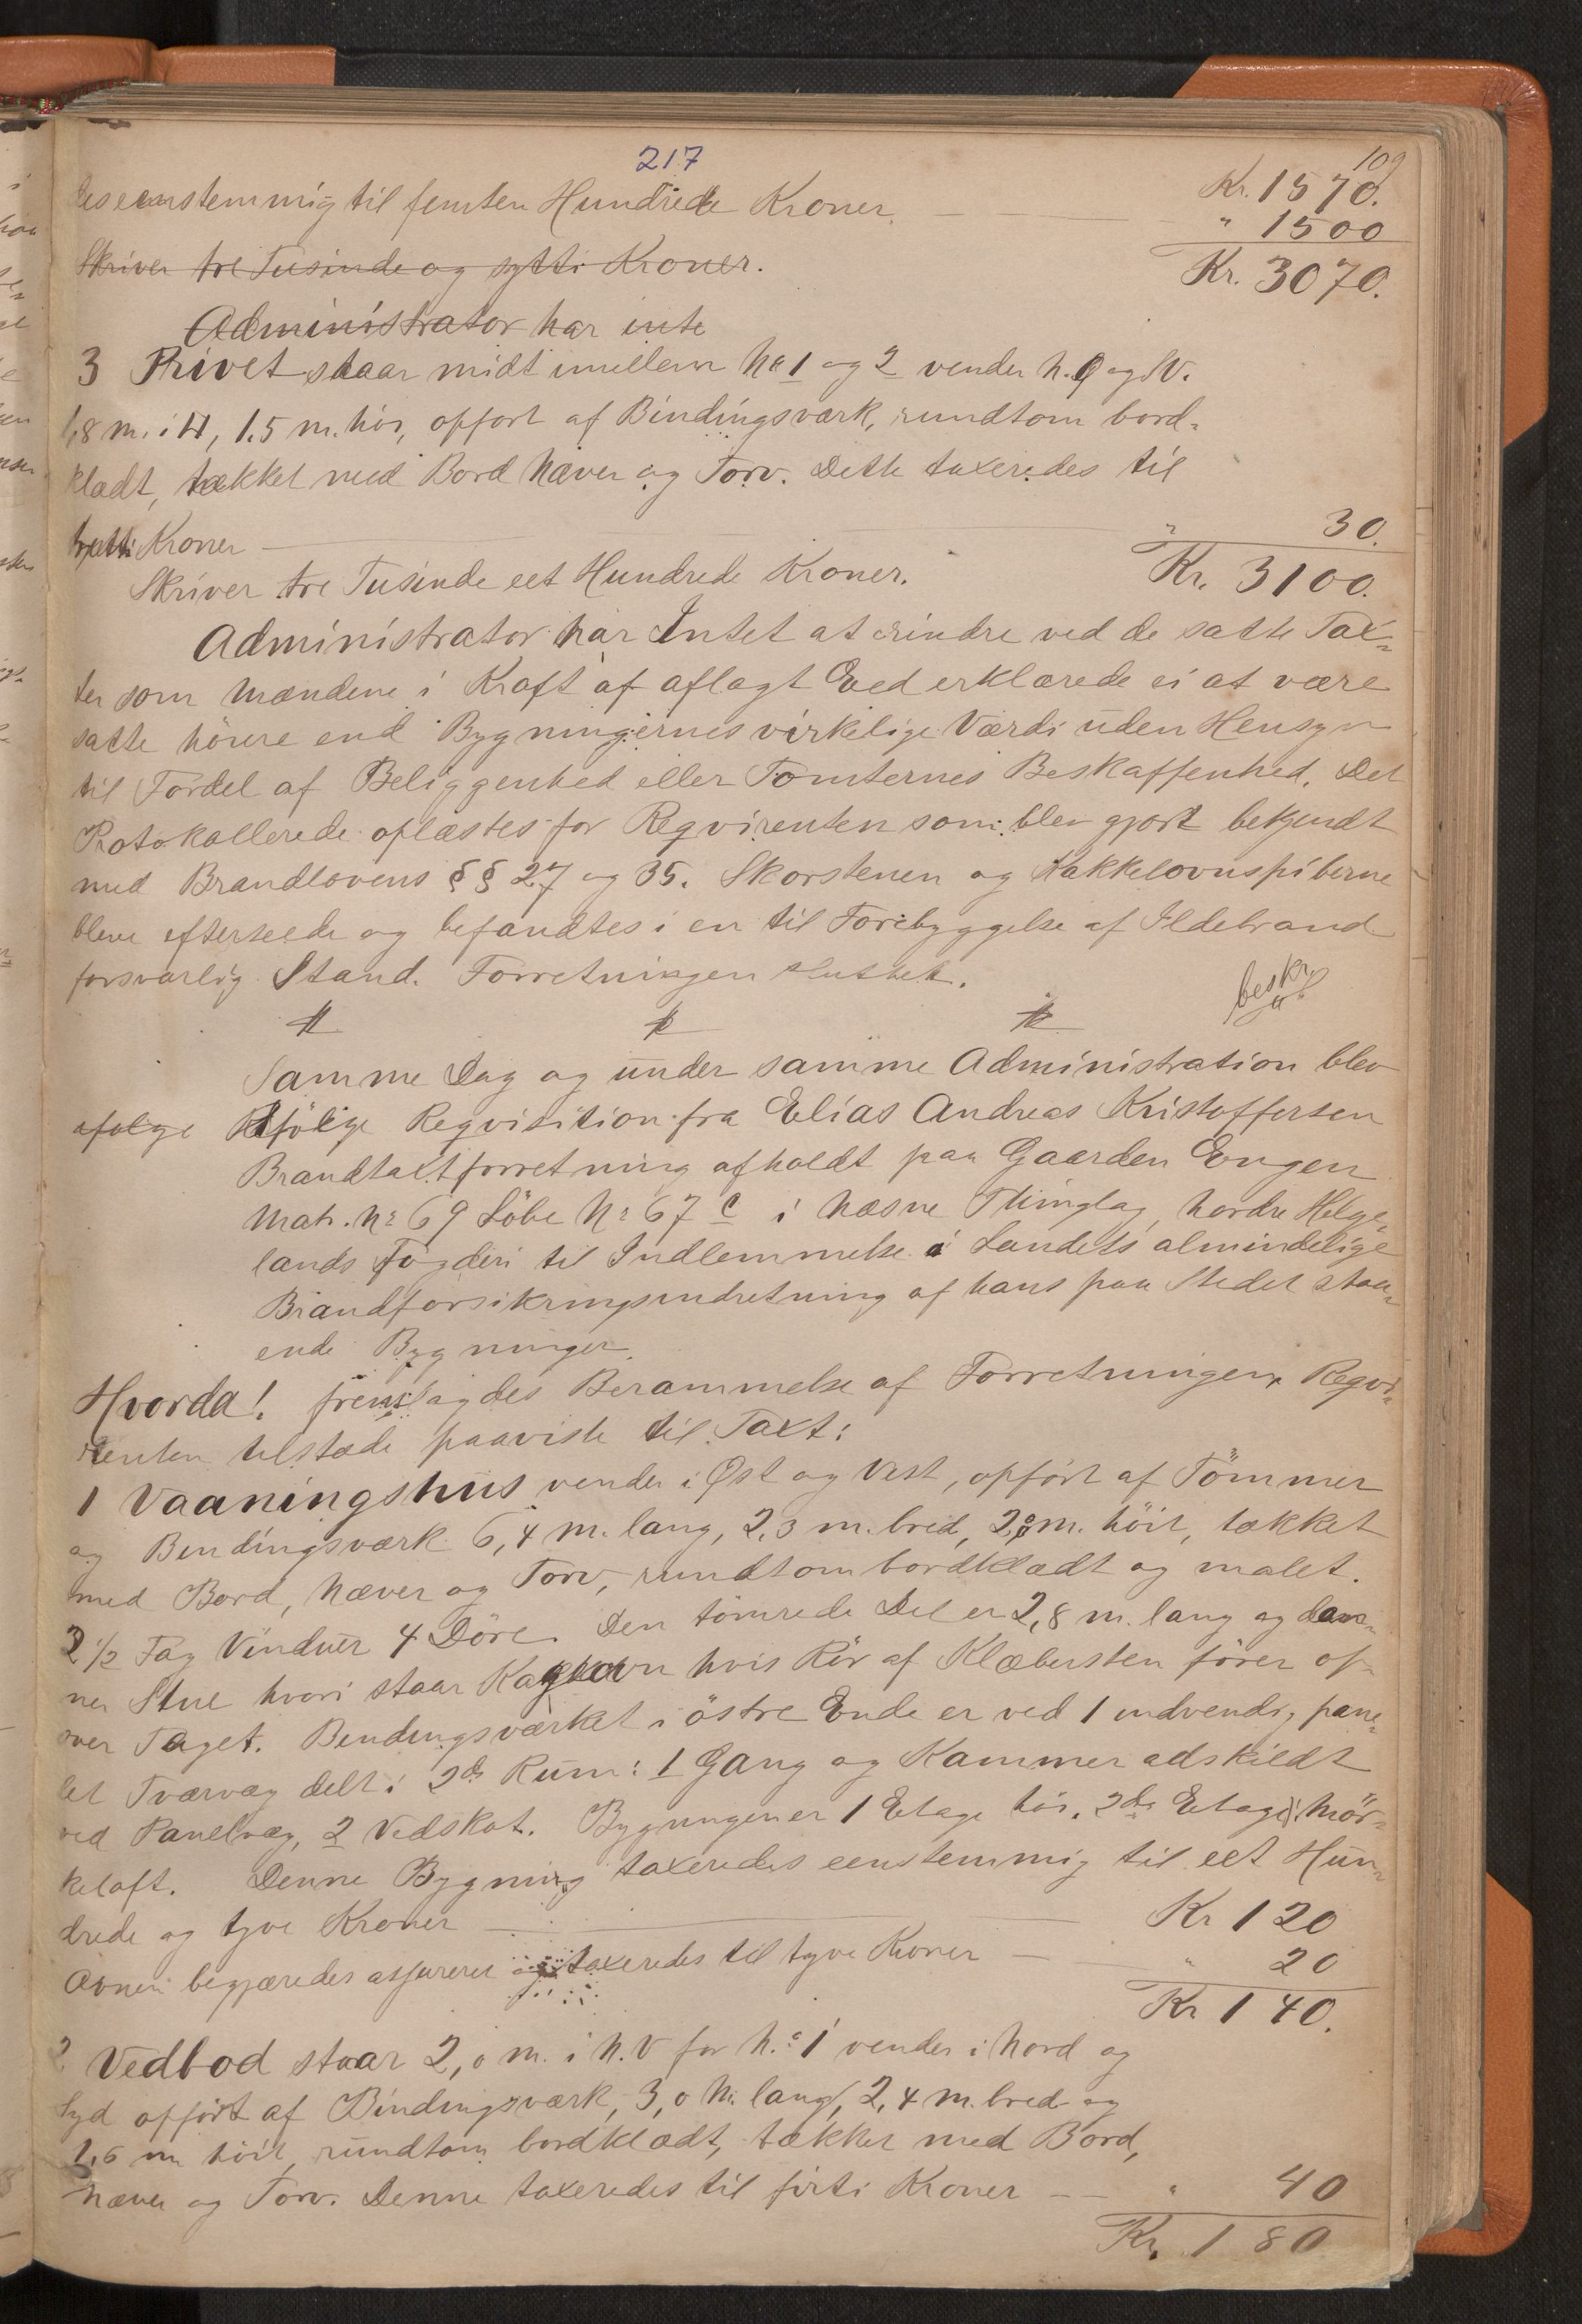 217
109
des eenstemmig til femten Hundrede Kroner. Kr. 1570.
" 1500
Skriver tre Tusinde og sytti Kroner. Kr. 3070.
Administrator har inte
3 Privet staar midt imellem No 1 og 2 vender N.O og S.V.
1,8 m. i H, 1.5 m. höi, opfört af Bindingsværk, rundtom bord-
klædt, tækket med Bord Næver og Torv. Dette taxeredes til
tretti Kroner " 30.
Skriver tre Tusinde eet Hundrede Kroner. Kr. 3100.
Administrator har Intet at erindre ved de satte Tax-
ter som Mændene i Kraft af aflagt Eed erklærede ei at være
satte höiere end Bygningernes virkelige Værdi uden Hensyn
til Fordel af Beliggenhed eller Tomternes Beskaffenhed. Det
Protokollerede oplæstes for Reqvirenten som blev gjort bekjendt
med Brandlovens §§ 27 og 35. Skorstenen og Kakkelovnspiberne
bleve efterseede og befandtes i en til Forebyggelse af Ildebrand
forsvarlig Stand. Forretningen sluttet.
beskr.
Samme Dag og under samme Administration blev
efolge ifölge Reqvisition fra Elias Andreas Kristoffersen
Brandtaxtforretning afholdt paa Gaarden Engen
Matr. No 69 Löbe No 67 c i Næsne Thinglag, Nordre Helge-
lands Fogderi til Indlemmelse i Landets almindelige
Brandforsikringsindretning af hans paa Stedet staa-
ende Bygninger.
Hvorda! fremlagdes Berammelse af Forretningen, Reqvi-
renten tilstæde paaviste til Taxt:
1 Vaaningshus vender i Øst og Vest, opfört af Tömmer
og Bendingsværk 6,4 m. lang, 2,3 m. bred, 2,0 m. höit, tækket
med Bord, Næver og Torv, rundtom bordklædt og malet.
2 1/2 Fag Vinduer 4 Döre. Den tömrede Del er 2,8 m. lang og dan-
ner Stue hvori staar Kagkovn hvis Rör af Klæbersten förer op
over Taget. Bendingsværket i östre Ende er ved 1 indvendig pane-
let Tværvæg delt i 2de Rum: 1 Gang og Kammer adskildt
ved Panelvæg, 2 Vedskot. Bygningen er 1 Etage höi. 2de Etage: Mör-
keloft. Denne Bygning taxeredes eenstemmig til eet Hun-
drede og tyve Kroner Kr 120
Ovnen begjæredes assureret og taxeredes til tyve Kroner " 20
Kr 140.
2. Vedbod staar 2,0 m. i N.V for N.o 1 vender i Nord og
Syd opfört af Bindingsværk, 3,0 m. lang, 2,4 m. bred og
1,6 m höit, rundtom bordklædt, tækket med Bord,
Næver og Torv. Denne taxeredes til firti Kroner " 40
Kr. 180